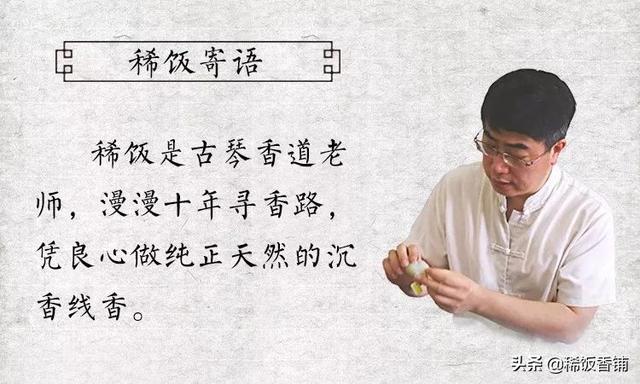 稀饭寄语
稀饭是古琴香道老
师，漫漫十年寻香路，
凭良心做纯正天然的沉
香线香。
头条 @稀饭香铺